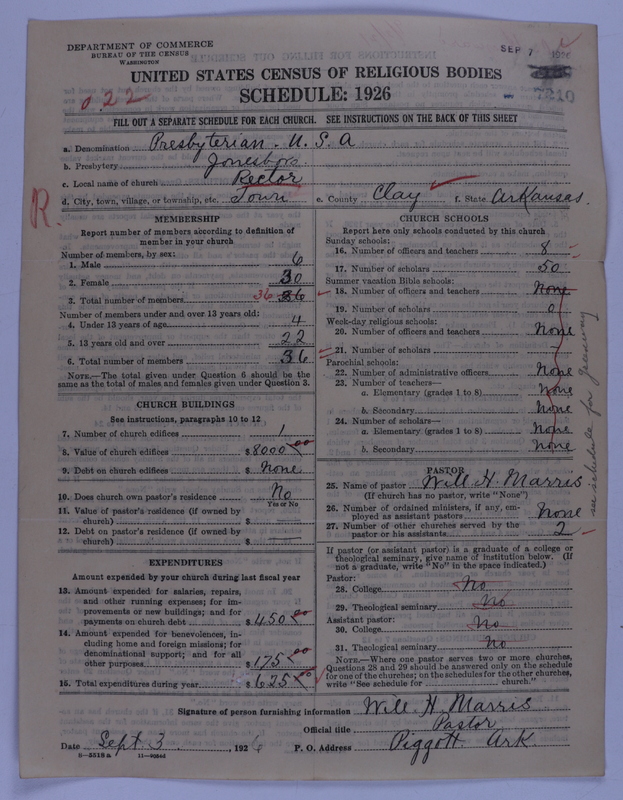 DEPARTMENT OF COMMERCE
BUREAU OF THE CENSUS
WASHINGTON
SEP 7 1926
7210
UNITED STATES CENSUS OF RELIGIOUS BODIES
SCHEDULE: 1926
022
FILL OUT A SEPARATE SCHEDULE FOR EACH CHURCH. SEE INSTRUCTIONS ON THE BACK OF THIS SHEET
a. Denomination Presbyterian. U.S.A
b. Presbytery Jonesboro
c. Local name of church Rector
R.
d. City, town, village, or township, etc. Town e. County Clay f. State Arkansas.
MEMBERSHIP
Report number of members according to definition of
member in your church
Number of members, by sex:
1. Male 6
2. Female 30
3. Total number of members 36 36
Number of members under and over 13 years old:
4. Under 13 years of age 4
5. 13 years old and over 22
6. Total number of members 36
NOTE.—The total given under Question 6 should be the
same as the total of males and females given under Question 3.
CHURCH BUILDINGS
See instructions, paragraphs 10 to 12
7. Number of church edifices 1
8. Value of church edifices $ 8000 00
9. Debt on church edifices $ None
10. Does church own pastor's residence No
Yes or No
11. Value of pastor's residence (if owned by
church) $
12. Debt on pastor's residence (if owned by
church) $
EXPENDITURES
Amount expended by your church during last fiscal year
13. Amount expended for salaries, repairs,
and other running expenses; for im-
provements or new buildings; and for
payments on church debt $ 450 00
14. Amount expended for benevolences, in-
cluding home and foreign missions; for
denominational support; and for all
other purposes $ 175 00
15. Total expenditures during year $ 625 00
CHURCH SCHOOLS
Report here only schools conducted by this church
Sunday schools:
16. Number of officers and teachers 8
17. Number of scholars 50
Summer vacation Bible schools:
18. Number of officers and teachers None
19. Number of scholars 0
Week-day religious schools:
20. Number of officers and teachers None
21. Number of scholars -
Parochial schools:
22. Number of administrative officers None
23. Number of teachers—
a. Elementary (grades 1 to 8) None
b. Secondary None
24. Number of scholars—
a. Elementary (grades 1 to 8) None
b. Secondary None
see schedule for
PASTOR
25. Name of pastor Will H. Marris
(If church has no pastor, write "None")
26. Number of ordained ministers, if any, em-
ployed as assistant pastors None
27. Number of other churches served by the
pastor or his assistants 2
If pastor (or assistant pastor) is a graduate of a college or
theological seminary, give name of institution below. (If
not a graduate, write "No" in the space indicated.)
Pastor:
28. College No
29. Theological seminary No
Assistant pastor:
30. College No
31. Theological seminary No
NOTE.—Where one pastor serves two or more churches,
Questions 28 and 29 should be answered only on the schedule
for one of the churches; on the schedules for the other churches,
write "See schedule for church."
Signature of person furnishing information Will H. Marris
Official title Pastor
Date Sept 3, 1926 P. O. Address Piggott Ark.
8—5518a 11—9054d